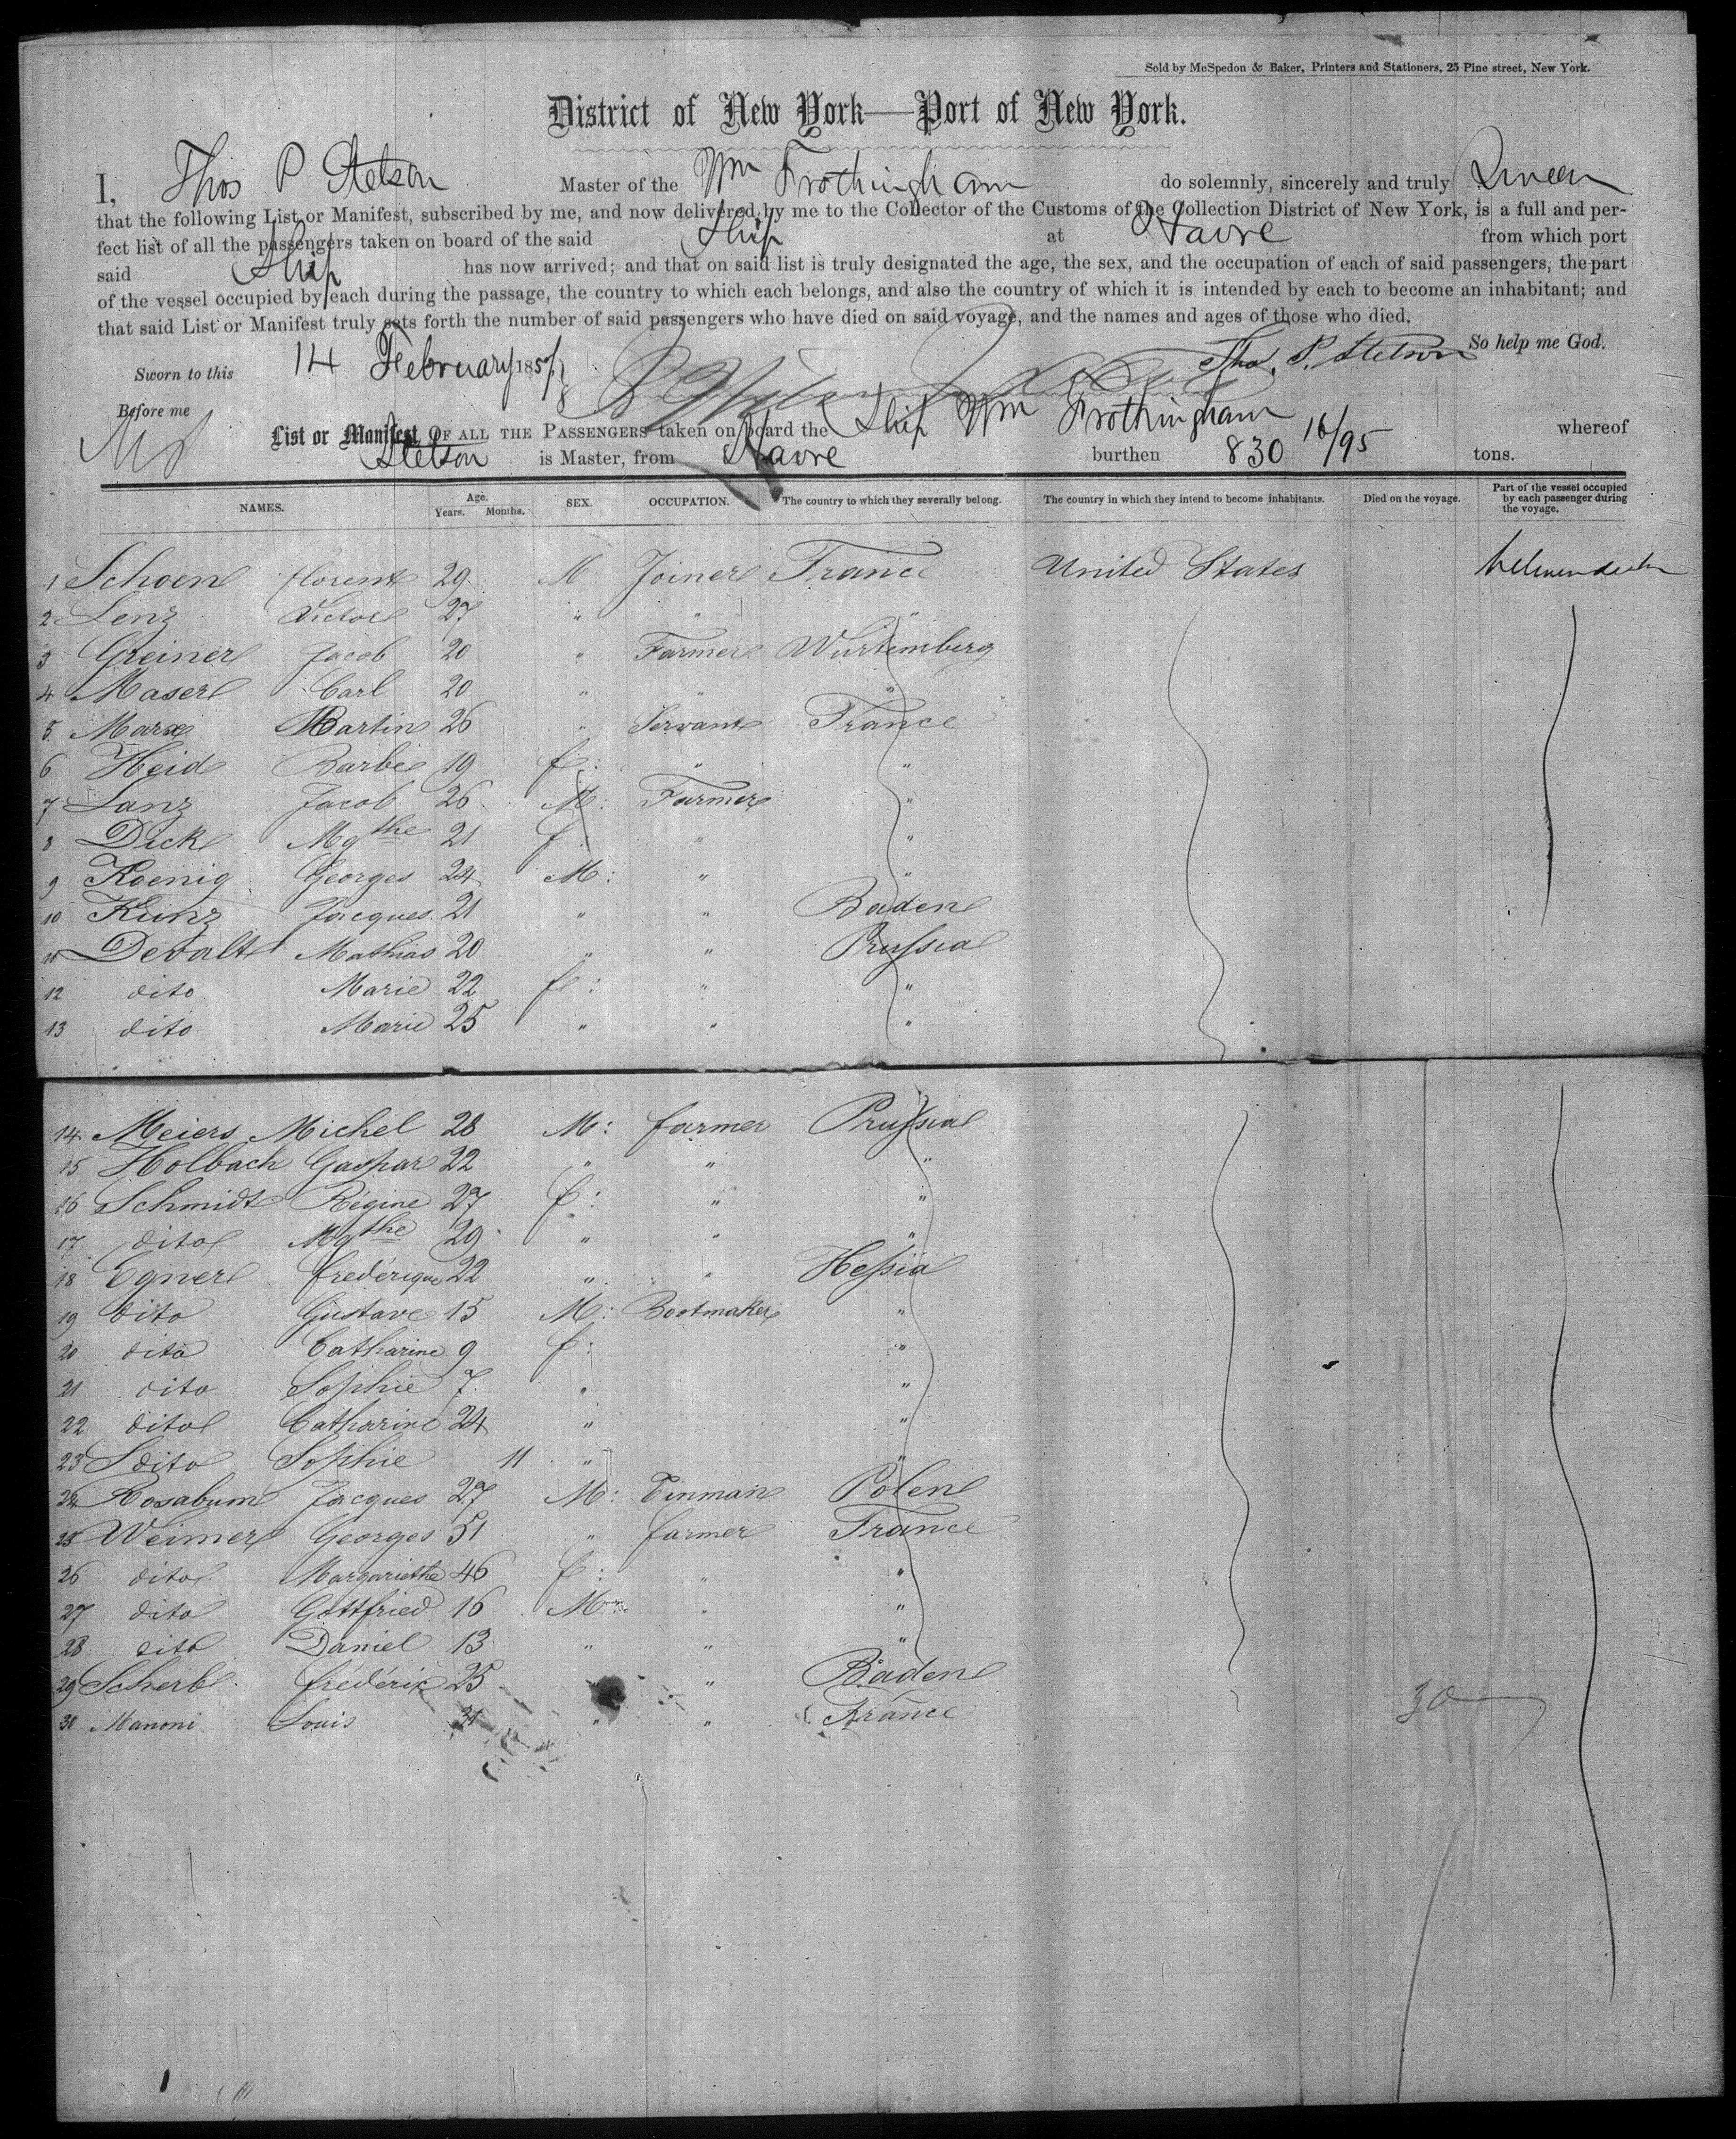 Sold by McSpedon & Baker, Printers and Stationers, 25 Pine street, New York.
District of New York—Port of New York.
I, Thos P Stetson Master of the Wm Frothingham do solemnly, sincerely and truly
that the following List or Manifest, subscribed by me, and now delivered by me to the Collector of the Customs of the Collection District of New York, is a full and per-
fect list of all the passengers taken on board of the said Ship at Havre from which port
said Ship has now arrived; and that on said list is truly designated the age, the sex, and the occupation of each of said passengers, the part
of the vessel occupied by each during the passage, the country to which each belongs, and also the country of which it is intended by each to become an inhabitant; and
that said List or Manifest truly sets forth the number of said passengers who have died on said voyage, and the names and ages of those who died.
So help me God.
Sworn to this 14 February 185 Thos. P. Stetson
Before me
List or Manifest OF ALL THE PASSENGERS taken on board the Ship Wm Frothingham whereof
Stetson is Master, from Havre burthen 830 16/95 tons.
NAMES. Age. Years. Months. SEX. OCCUPATION. The country to which they severally belong. The country in which they intend to become inhabitants. Died on the voyage. Part of the vessel occupied by each passenger during the voyage.
1 Schoen florent 29 M Joiner France United States
2 Lenz Victor 27 " " "
3 Greiner Jacob 20 " Farmer Wurtemberg
4 Maser Carl 20 " " "
5 Marx Martin 26 " Servant France
6 Heid Barbe 19 f: " "
7 Lanz Jacob 26 M: Farmer "
8 Dick Mgthe 21 f: " "
9 Koenig Georges 24 M: " "
10 Kunz Jacques 21 " " Baden
11 Devalt Mathias 20 " " Prussia
12 dito Marie 22 f: " "
13 dito Marie 25 " " "
14 Meiers Michel 28 M: farmer Prussia
15 Holbach Gaspar 22 " " "
16 Schmidt Régine 27 f: " "
17 dito Mgthe 29 " " "
18 Egner frédérique 22 " " Hessia
19 dito Gustave 15 M: Bootmaker "
20 dito Catharine 9 f: "
21 dito Sophie 7 " "
22 dito Catharine 24 " "
23 dito Sophie 11 " "
24 Rosabum Jacques 27 M: Tinman Polen
25 Weimer Georges 51 " farmer France
26 dito Margariethe 46 f: " "
27 dito Gottfried 16 M " "
28 dito Daniel 13 " " "
29 Scherb frédéric 25 " Baden
30 Manoni Louis 31 " " France
30